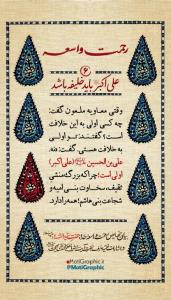 رحمت واسعه
۶
علی اکبر باید خلیفه باشد
وقتی معاویه ملعون گفت:
چه کسی اولی به این خلافت
است؟ گفتند: تو اولی
به خلافت هستی. گفت: نه.
علی بن الحسین (علی اکبر)
اولی است؛ چرا که بزرگ‌منشی
ثقیف، سخاوت بنی امیه و
شجاعت بنی هاشم؛ همه را دارد.
@MatiGraphic.ir
@MatiGraphic